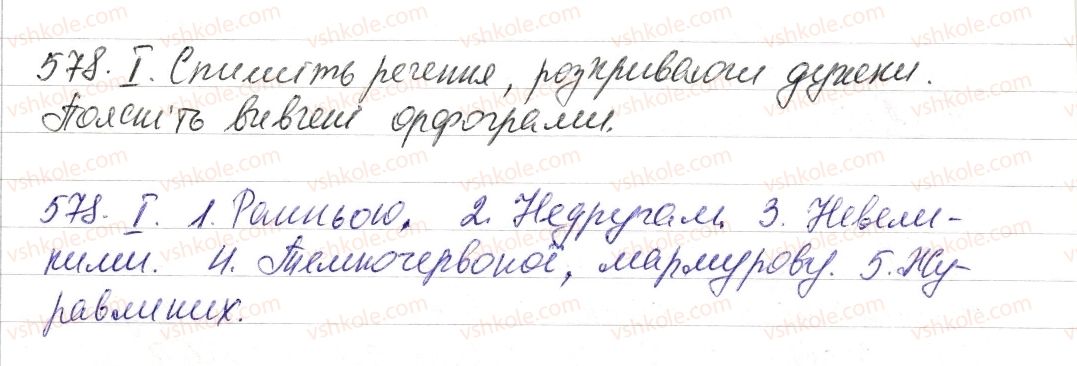 578. I. Спишіть речення, розкриваючи дужки.
Поясніть вивчені орфограми.
578. I. 1. Ранньою. 2. Недругам. 3. Невели-
кими. 4. Темночервоної, мармурову. 5. Жу-
равлиних.